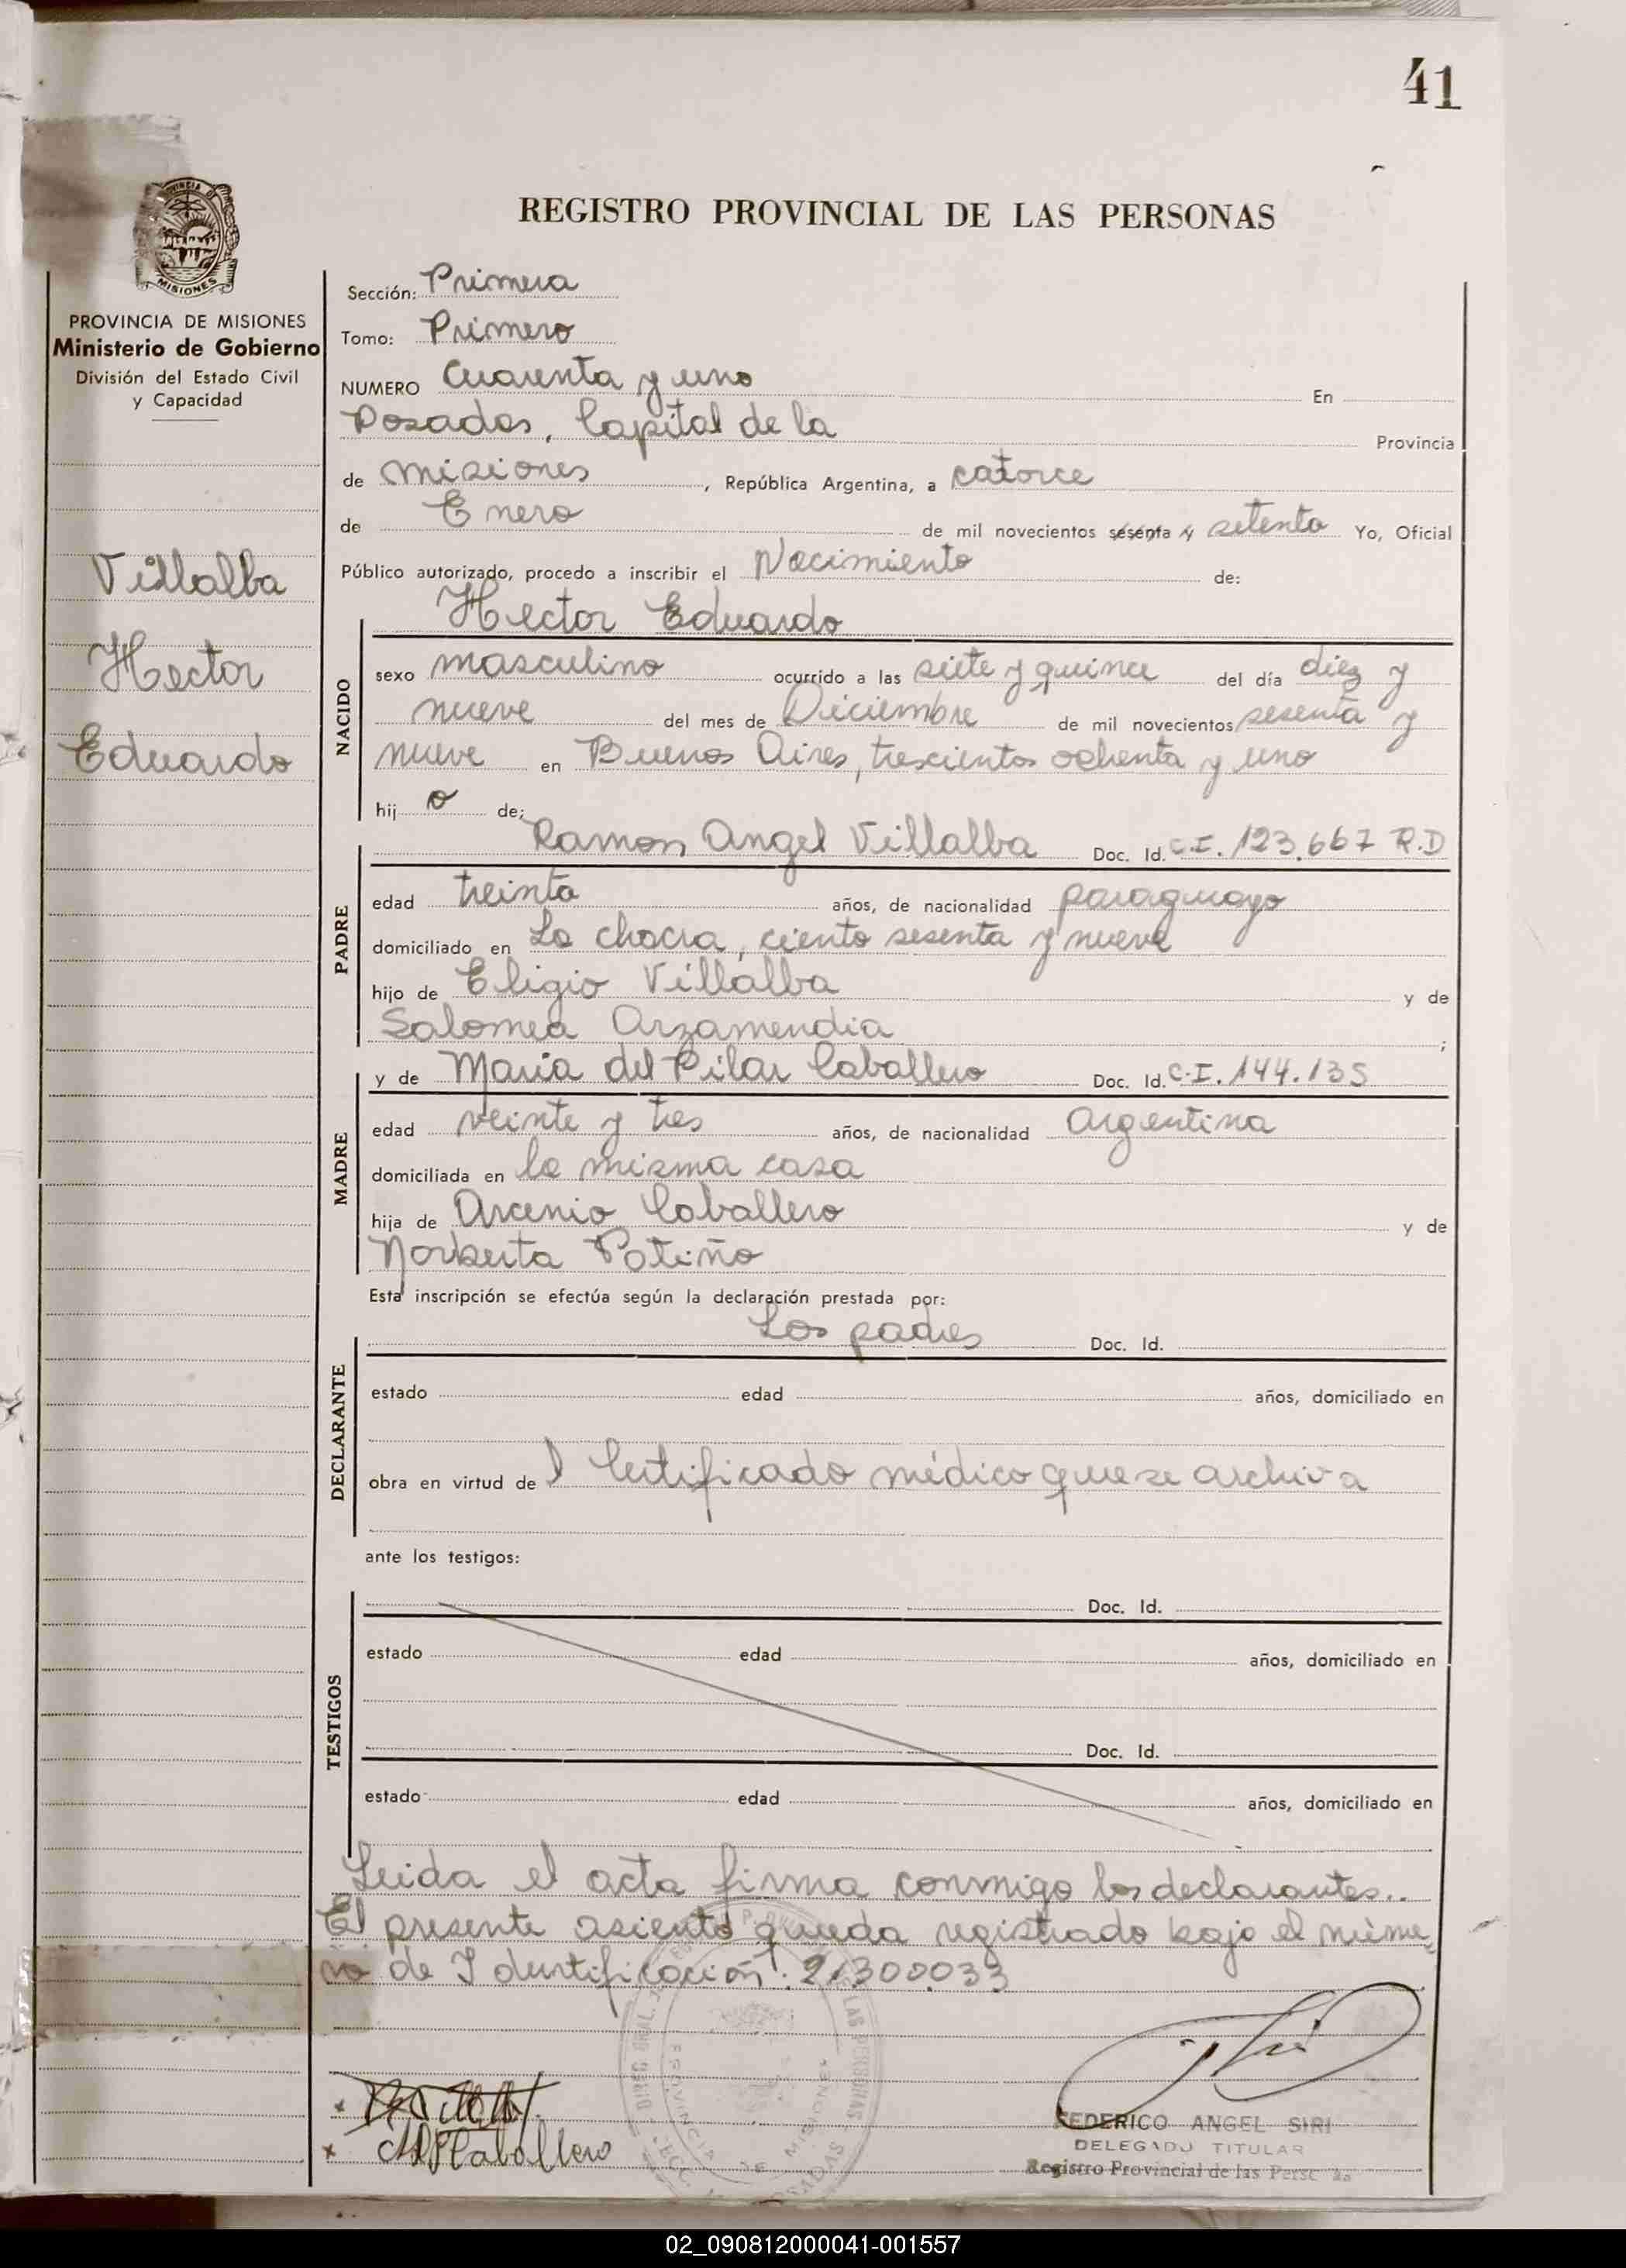 41
REGISTRO PROVINCIAL DE LAS PERSONAS
MISIONES
PROVINCIA DE MISIONES
Ministerio de Gobierno
División del Estado Civil
y Capacidad
Villalba
Hector
Eduardo
Sección: Primera
Tomo: Primero
NUMERO Cuarenta y uno En
Posadas, Capital de la Provincia
de Misiones, República Argentina, a catorce
de Enero de mil novecientos sesenta y setenta Yo, Oficial
Público autorizado, procedo a inscribir el Nacimiento de:
Hector Eduardo
NACIDO
sexo masculino ocurrido a las siete y quince del día diez y
nueve del mes de Diciembre de mil novecientos sesenta y
nueve en Buenos Aires, trescientos ochenta y uno
hijo de;
Ramon Angel Villalba Doc. Id. C.I. 123.667 R.D
PADRE
edad treinta años, de nacionalidad paraguayo
domiciliado en La chacra, ciento sesenta y nueve
hijo de Eligio Villalba y de
Salomea Arzamendia;
y de Maria del Pilar Caballero Doc. Id. C.I. 144.135
MADRE
edad veinte y tres años, de nacionalidad Argentina
domiciliada en la misma casa
hija de Arcenio Caballero y de
Norberta Patiño
Esta inscripción se efectúa según la declaración prestada por:
Los padres Doc. Id.
DECLARANTE
estado edad años, domiciliado en
obra en virtud del Certificado médico que se archiva
ante los testigos:
Doc. Id.
TESTIGOS
estado edad años, domiciliado en
Doc. Id.
estado edad años, domiciliado en
Leida el acta firma conmigo los declarantes..
El presente asiento queda registrado bajo el núme
ro de Identificación: 21300033
MPCaballero
FEDERICO ANGEL SIRI
DELEGADO TITULAR
Registro Provincial de las Perso
PROVINCIA DE MISIONES
02_090812000041-001557